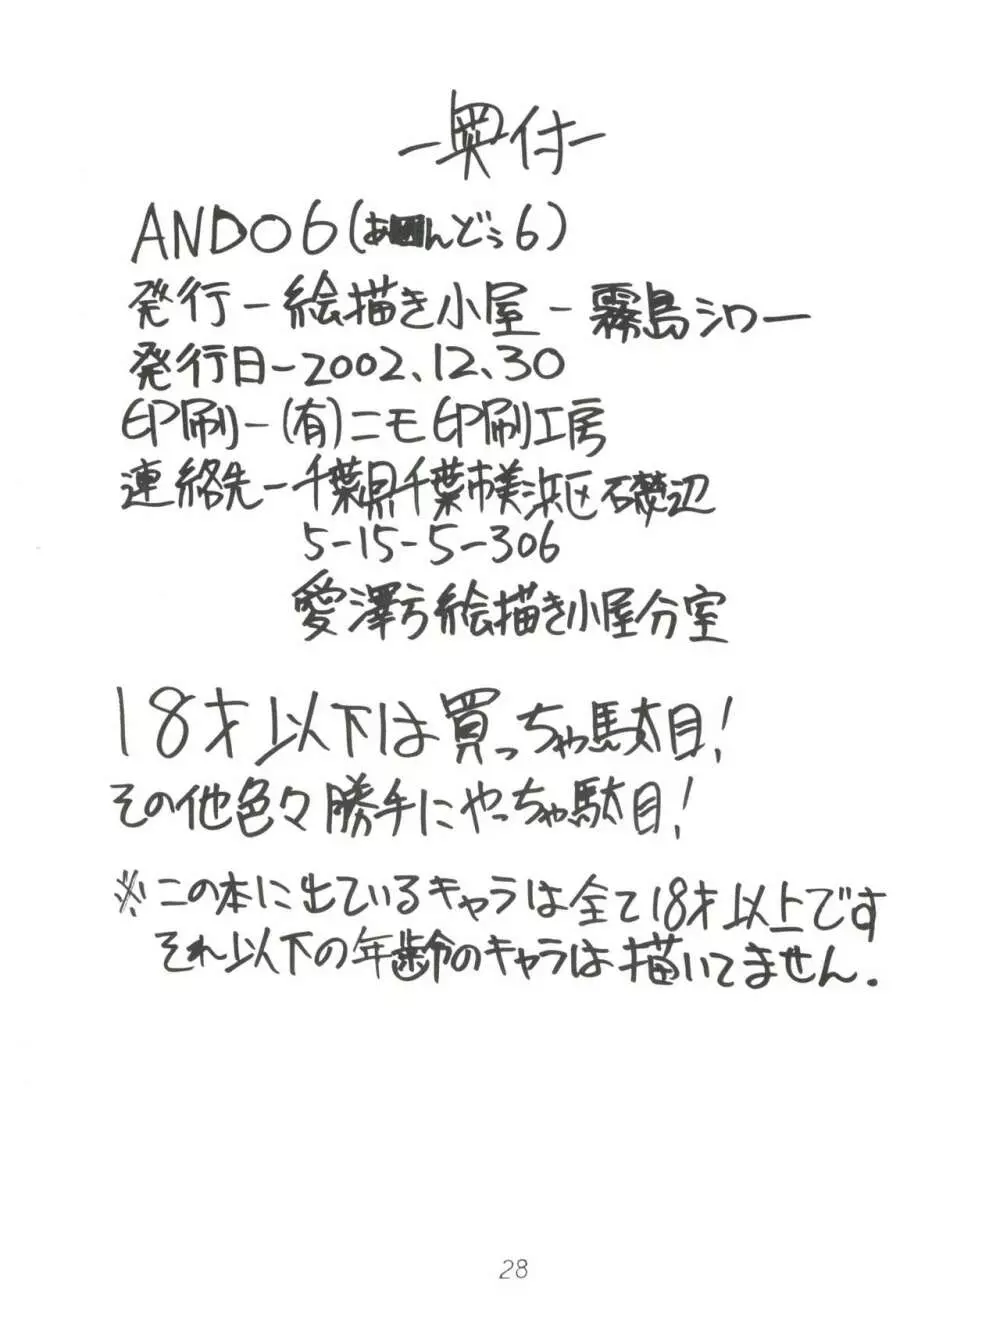 ー奥付ー
ANDO6(あんどぅ6)
発行ー絵描き小屋ー霧島シロー
発行日ー2002.12.30
印刷ー(有)ニモ印刷工房
連絡先ー千葉県千葉市美浜区磯辺
5-15-5-306
愛澤方絵描き小屋分室
18才以下は買っちゃ駄目!
その他色々勝手にやっちゃ駄目!
※この本に出ているキャラは全て18才以上です
それ以下の年齢のキャラは描いてません.
28